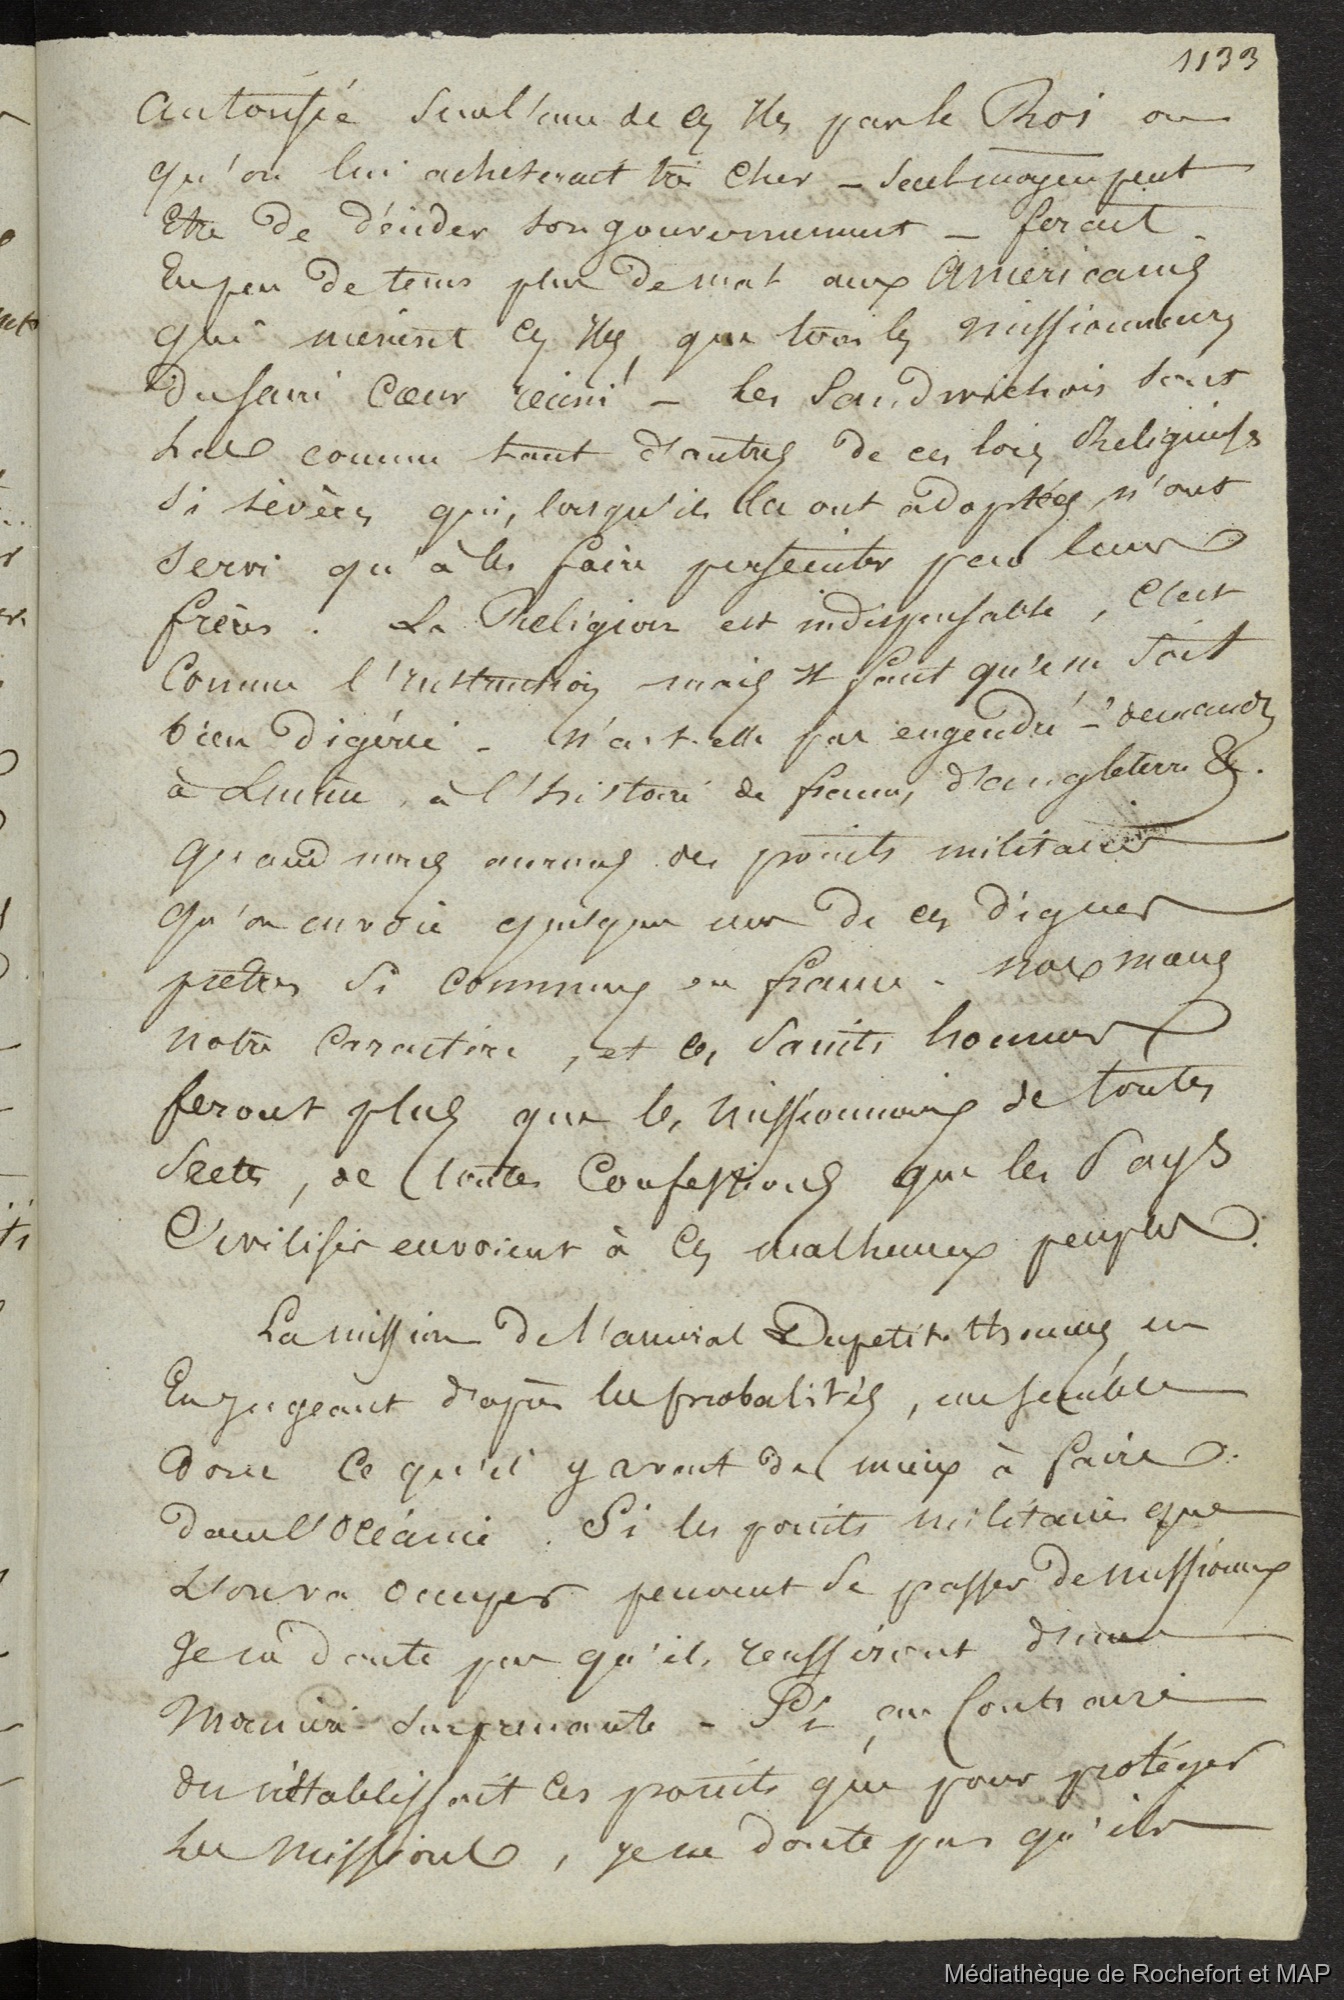 1133
autorisée sur l'une de ces Iles par le Roi ou
qu'on lui acheterait très cher _ seul moyen peut
Etre de décider son gouvernement _ ferait
En peu de tems plus de mal aux Américains
qui mènent ces Iles, que tous les missionnaires
du sacré Cœur réuni _ les Sandwichois sont
las comme tant d'autres de ces lois Religieuses
si sévères qui, lorsqu'ils les ont adoptées, n'ont
servi qu'à les faire persécuter par leurs
frères. La Religion est indispensable, C'est
Comme l'instruction mais il faut qu'elle soit
bien digérée _ N'a-t-elle pas engendré _ demandez
à à l'histoire de france, d'angleterre &.
quand nous aurons des points militaires
qu'on envoie quelques uns de ces dignes
prêtres si communs en france _ nos mœurs
notre caractère, et ces saints hommes
feront plus que les missionnaires de toutes
Sectes, de toutes Confessions que les Pays
Civilisés envoient à ces malheureux peuples.
La mission de l'amiral Dupetit-thouars, en
En jugeant d'après les probalités, me semble
donc Ce qu'il y avait de mieux à faire
dans l'Océanie. Si les points militaires que
L'on va occuper peuvent se passer de missionnaires
Je ne doute pas qu'ils reussiront d'une
Manière surprenante _ Si, au Contraire
on n'établissait ces points que pour protéger
Les missions, je ne doute pas qu'ils
Médiathèque de Rochefort et MAP